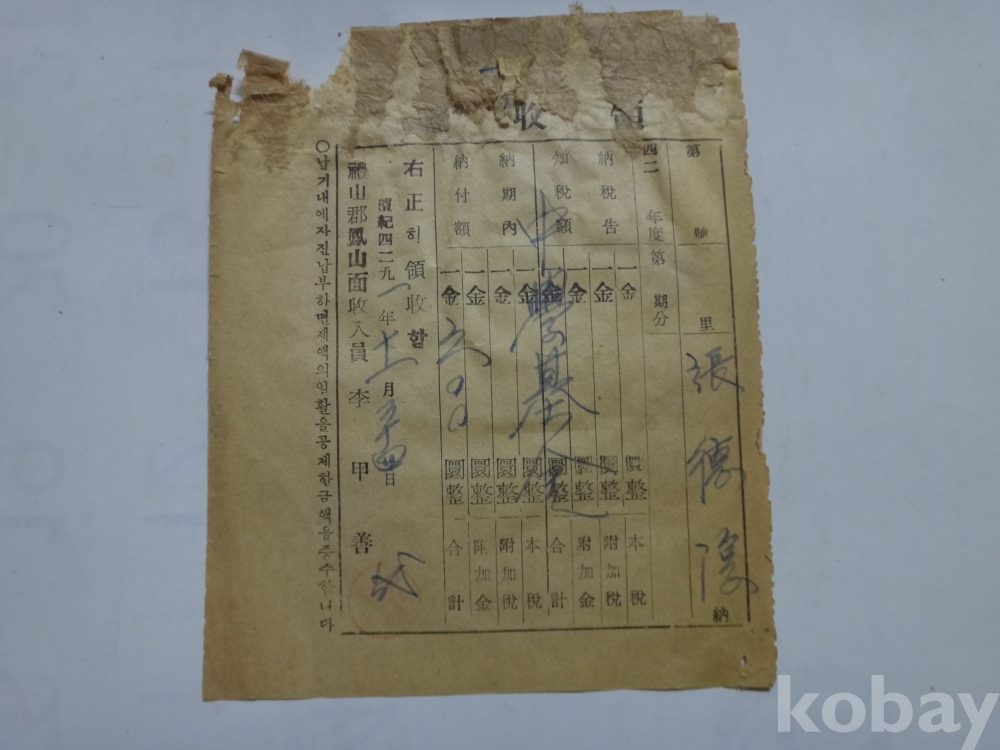 領收
第 號
里 張德 納
四二 年度第 期分
納稅告
知稅額
一金 圜整 本稅
一金 圜整 附加稅
一金 圜整 附加金
一金 圜整 合計
中學基金
納期內
納付額
一金 圜整 本稅
一金 圜整 附加稅
一金 圜整 附加金
一金 五00 圜整 合計
右正히 領收함
檀紀四二九一年十一月 日
禮山郡鳳山面收入員 李甲善 代
○납기내에자진납부하면세액의일활을공제한금액을증수합니다
kobay